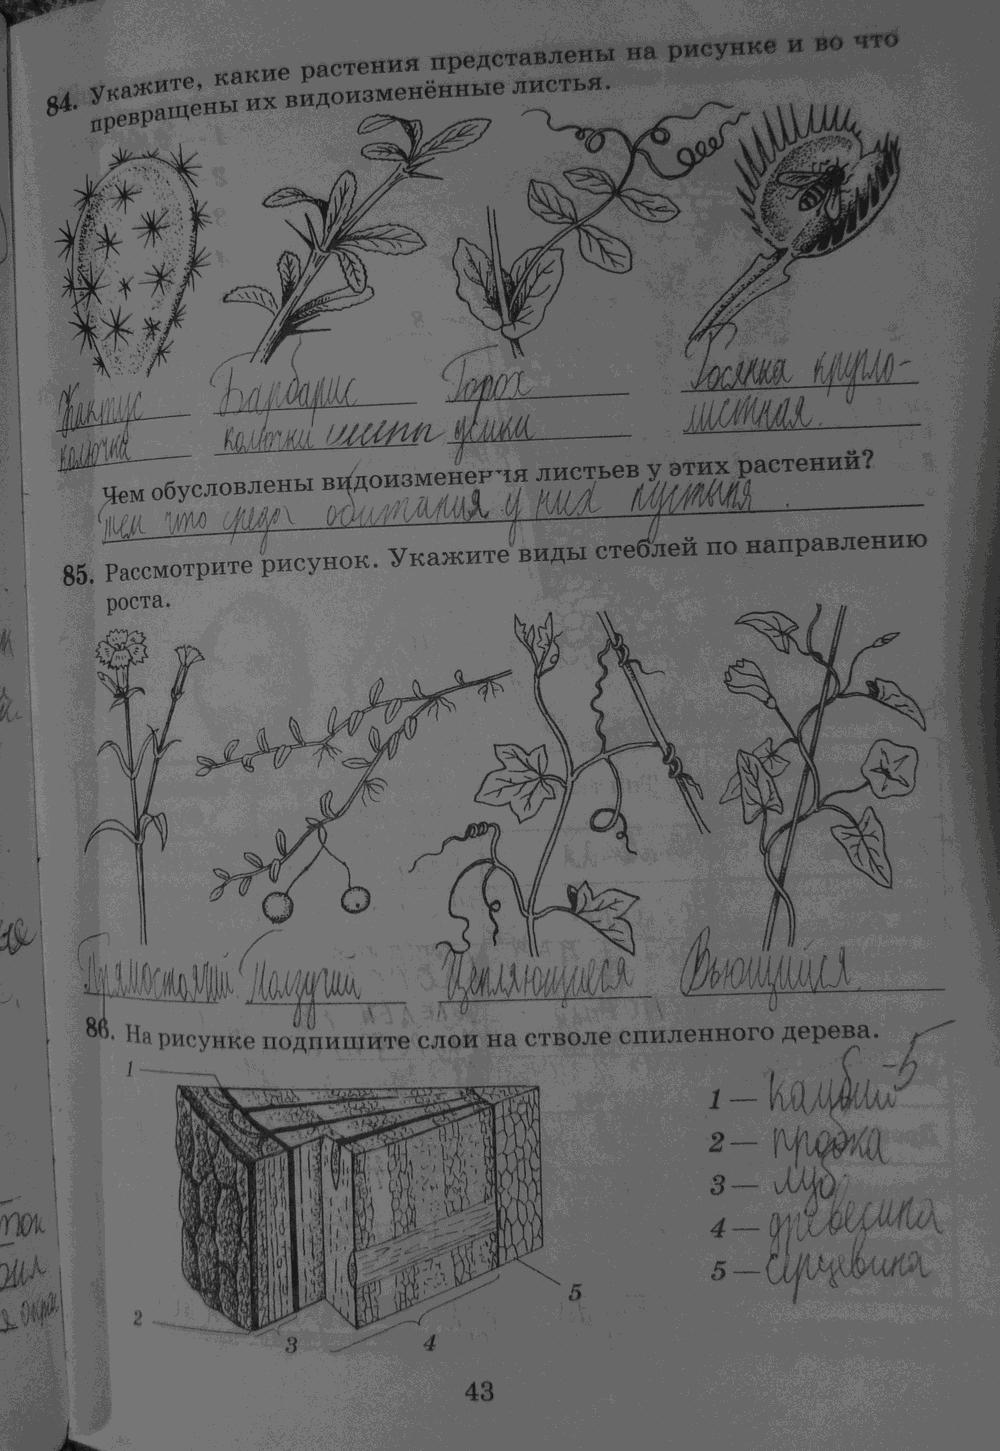 84. Укажите, какие растения представлены на рисунке и во что
превращены их видоизменённые листья.
Кактус Барбарис Горох Росянка кругло-
колючка колючки усики листная.
Чем обусловлены видоизменения листьев у этих растений?
Тем что среда обитания у них пустыня.
85. Рассмотрите рисунок. Укажите виды стеблей по направлению
роста.
Прямостоячий Ползучий Цепляющиеся Вьющийся
86. На рисунке подпишите слои на стволе спиленного дерева.
1
1 — камбий -5
2 — пробка
3 — луб
4 — древесина
5 — серцевина
5
2
3
4
43